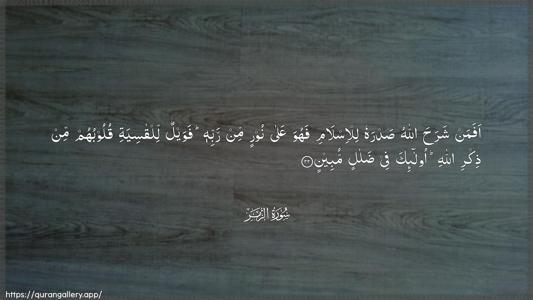 اَفَمَنْ شَرَحَ اللّٰهُ صَدْرَهٗ لِلْاِسْلَامِ فَهُوَ عَلٰی نُوْرٍ مِّنْ رَّبِّهٖ ؕ فَوَیْلٌ لِّلْقٰسِیَةِ قُلُوْبُهُمْ مِّنْ
ذِكْرِ اللّٰهِ ؕ اُولٰٓىِٕكَ فِیْ ضَلٰلٍ مُّبِیْنٍ ۟۲۲
سُوْرَةُ الزُّمَرِ
https://qurangallery.app/